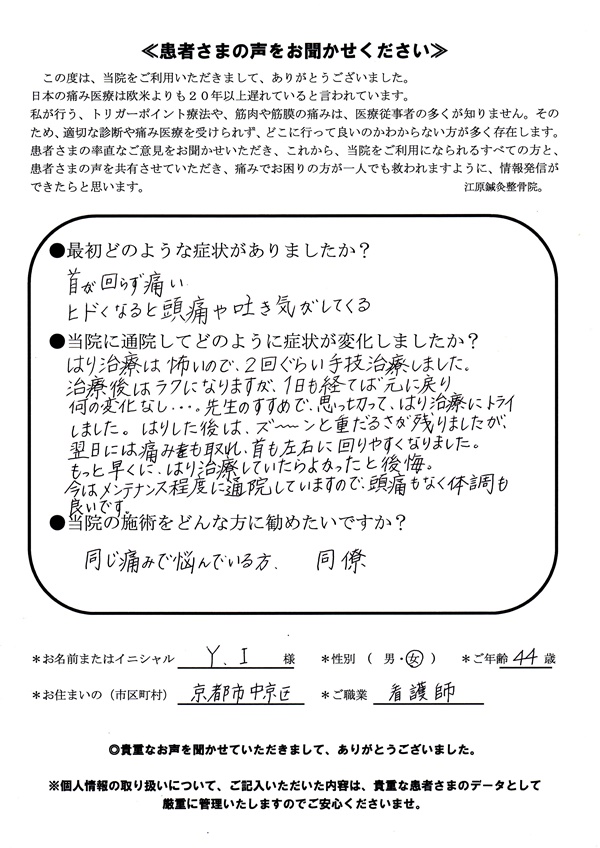 ≪患者さまの声をお聞かせください≫
この度は、当院をご利用いただきまして、ありがとうございました。
日本の痛み医療は欧米よりも２０年以上遅れていると言われています。
私が行う、トリガーポイント療法や、筋肉や筋膜の痛みは、医療従事者の多くが知りません。その
ため、適切な診断や痛み医療を受けられず、どこに行って良いのかわからない方が多く存在します。
患者さまの率直なご意見をお聞かせいただき、これから、当院をご利用になられるすべての方と、
患者さまの声を共有させていただき、痛みでお困りの方が一人でも救われますように、情報発信が
できたらと思います。 江原鍼灸整骨院。
●最初どのような症状がありましたか？
首が回らず痛い
ヒドくなると頭痛や吐き気がしてくる
●当院に通院してどのように症状が変化しましたか？
はり治療は怖いので、2回ぐらい手技治療しました。
治療後はラクになりますが、1日も経てば元に戻り
何の変化なし・・・。先生のすすめで、思い切って、はり治療にトライ
しました。はりした後は、ズ〜〜ンと重だるさが残りましたが、
翌日には痛みも取れ、首も左右に回りやすくなりました。
もっと早くに、はり治療していたらよかったと後悔。
今はメンテナンス程度に通院していますので、頭痛もなく体調も
良いです。
●当院の施術をどんな方に勧めたいですか？
同じ痛みで悩んでいる方、 同僚
＊お名前またはイニシャル Y．I 様 ＊性別（ 男・女 ） ＊ご年齢 44 歳
＊お住まいの（市区町村） 京都市中京区 ＊ご職業 看護師
◎貴重なお声を聞かせていただきまして、ありがとうございました。
※個人情報の取り扱いについて、ご記入いただいた内容は、貴重な患者さまのデータとして
厳重に管理いたしますのでご安心くださいませ。